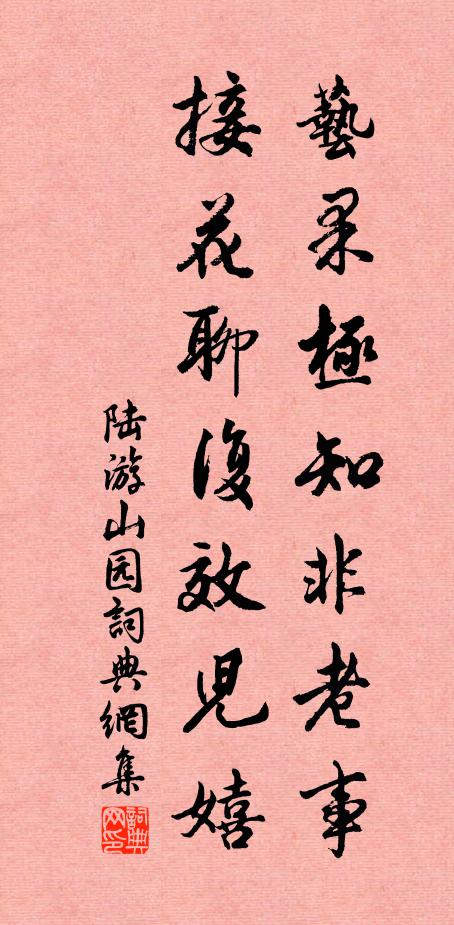 藝果極知非老事
接花聊復效兒嬉
陆游山园詞典網集
詞典网印